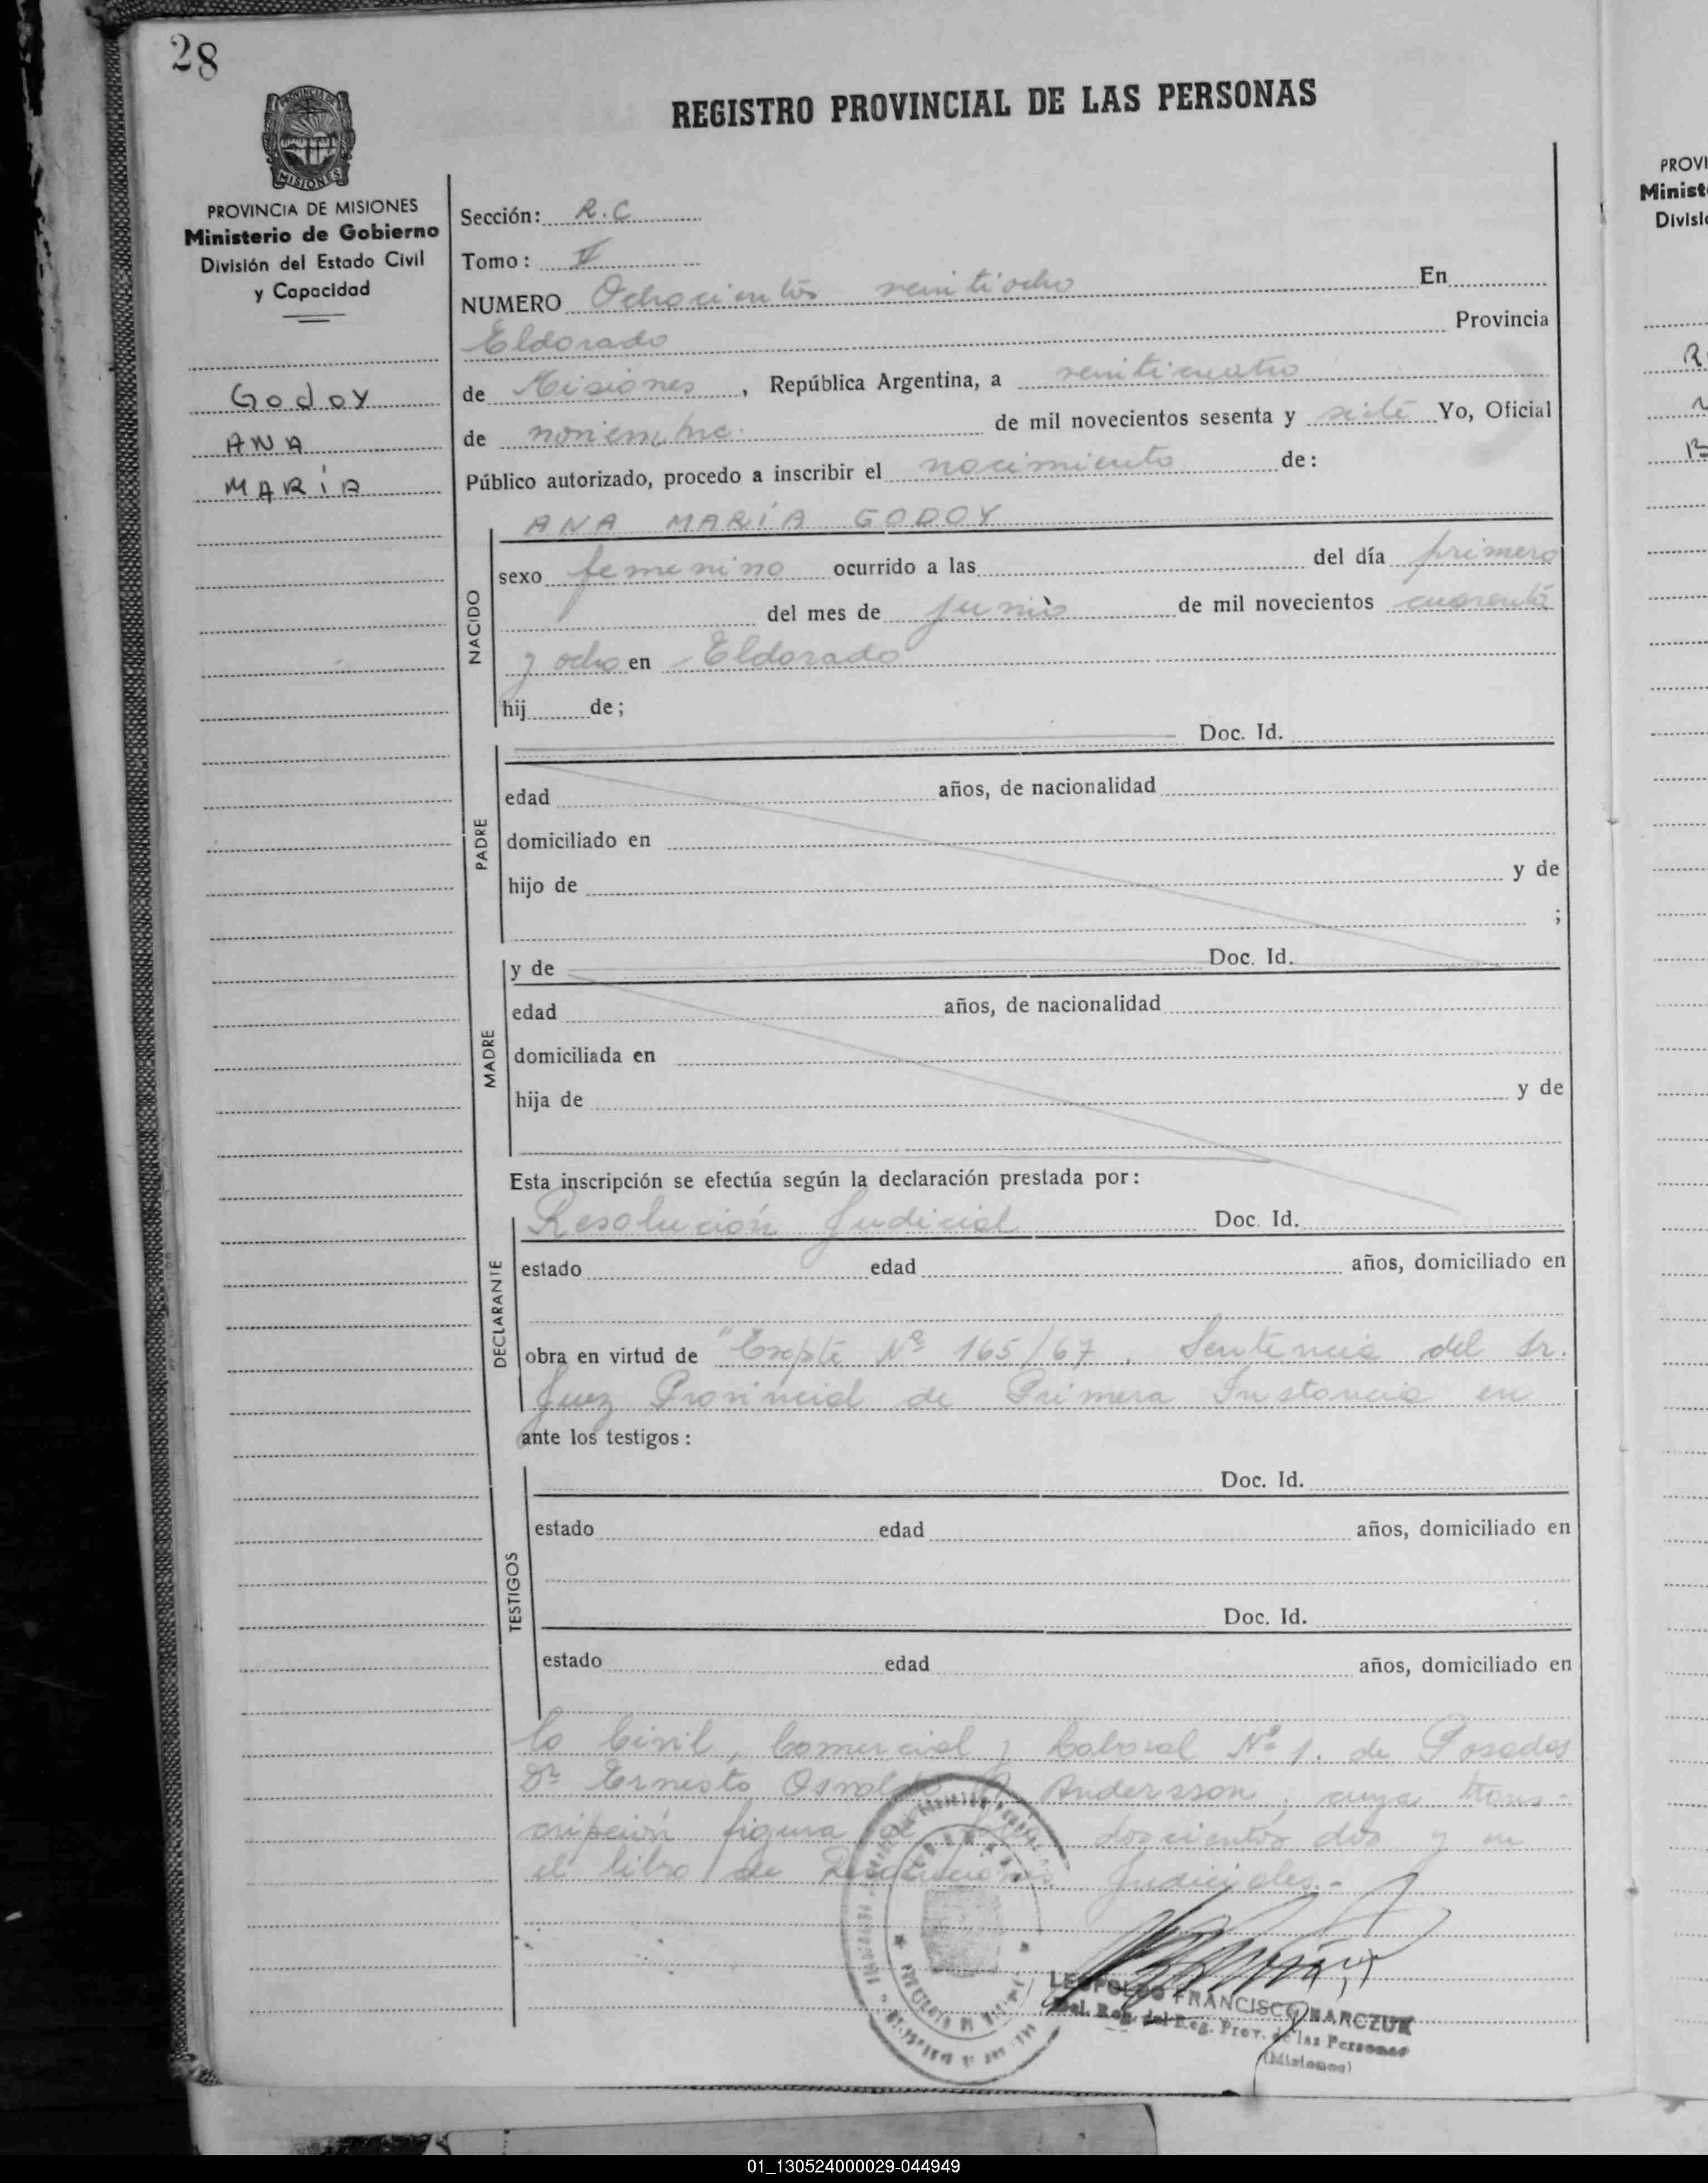 28
REGISTRO PROVINCIAL DE LAS PERSONAS
PROVINCIA DE MISIONES
MISIONES
PROVINCIA DE MISIONES
Ministerio de Gobierno
División del Estado Civil
y Capacidad
Godoy
ANA
MARÍA
Sección: R.C
Tomo: V
NUMERO Ochocientos veintiocho En
Eldorado Provincia
de Misiones, República Argentina, a veinticuatro
de noviembre. de mil novecientos sesenta y siete Yo, Oficial
Público autorizado, procedo a inscribir el nacimiento de:
ANA MARÍA GODOY
NACIDO
sexo femenino ocurrido a las del día primero
del mes de junio de mil novecientos cuarenta
y ocho en Eldorado
hij de;
PADRE
Doc. Id.
edad años, de nacionalidad
domiciliado en
hijo de y de
;
MADRE
y de Doc. Id.
edad años, de nacionalidad
domiciliada en
hija de y de
Esta inscripción se efectúa según la declaración prestada por:
DECLARANTE
Resolución Judicial Doc. Id.
estado edad años, domiciliado en
obra en virtud de "Expte Nº 165/67. Sentencia del Sr.
Juez Provincial de Primera Instancia en
ante los testigos:
TESTIGOS
Doc. Id.
estado edad años, domiciliado en
Doc. Id.
estado edad años, domiciliado en
lo Civil, Comercial y Laboral Nº 1. de Posadas
Dr Ernesto Osvaldo Andersson; cuya trans-
cripción figura doscientos dos y en
el libro de Resoluciones Judiciales.-
LEOPOLDO FRANCISCO BARCZUK
Del. Reg. del Reg. Prov. de las Personas
(Misiones)
PROVI
Minist
Divisi
01_130524000029-044949